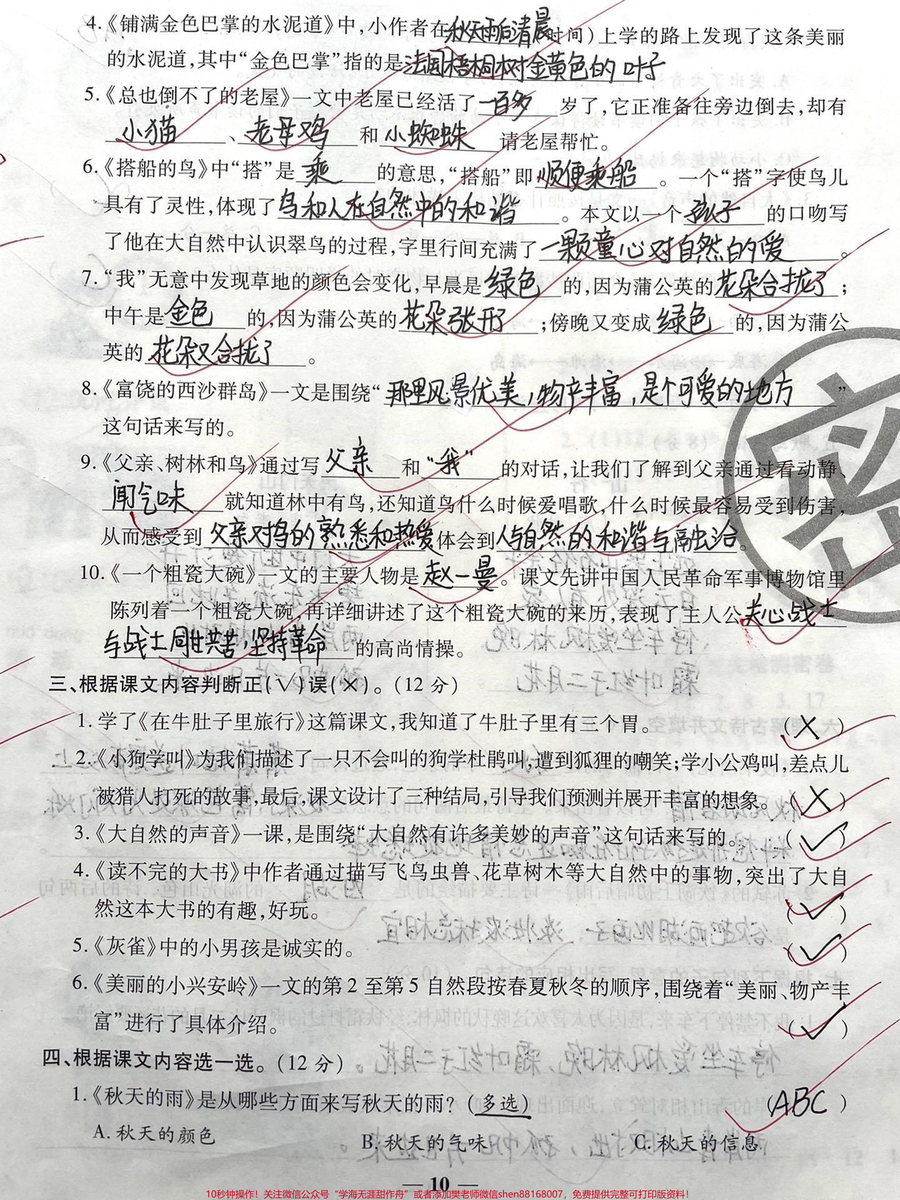 4.《铺满金色巴掌的水泥道》中,小作者在秋天雨后清晨(时间)上学的路上发现了这条美丽
的水泥道,其中“金色巴掌”指的是法国梧桐树金黄色的叶子
5.《总也倒不了的老屋》一文中老屋已经活了一百多岁了,它正准备往旁边倒去,却有
小猫、老母鸡和小蜘蛛请老屋帮忙。
6.《搭船的鸟》中“搭”是乘的意思,“搭船”即顺便乘船。一个“搭”字使鸟儿
具有了灵性,体现了鸟和人在自然中的和谐。本文以一个孩子的口吻写
了他在大自然中认识翠鸟的过程,字里行间充满了一颗童心对自然的爱。
7.“我”无意中发现草地的颜色会变化,早晨是绿色的,因为蒲公英的花朵合拢了;
中午是金色的,因为蒲公英的花朵张开;傍晚又变成绿色的,因为蒲公
英的花朵又合拢了。
8.《富饶的西沙群岛》一文是围绕“那里风景优美,物产丰富,是个可爱的地方”
这句话来写的。
9.《父亲、树林和鸟》通过写父亲和“我”的对话,让我们了解到父亲通过看动静、
闻气味就知道林中有鸟,还知道鸟什么时候爱唱歌,什么时候最容易受到伤害,
从而感受到父亲对鸟的熟悉和热爱体会到人与自然的和谐与融洽。
10.《一个粗瓷大碗》一文的主要人物是赵一曼。课文先讲中国人民革命军事博物馆里
陈列着一个粗瓷大碗,再详细讲述了这个粗瓷大碗的来历,表现了主人公关心战士
与战士同甘共苦,坚持革命的高尚情操。
密
三、根据课文内容判断正(√)误(×)。(12分)
1.学了《在牛肚子里旅行》这篇课文,我知道了牛肚子里有三个胃。(×)
2.《小狗学叫》为我们描述了一只不会叫的狗学杜鹃叫,遭到狐狸的嘲笑;学小公鸡叫,差点儿
被猎人打死的故事,最后,课文设计了三种结局,引导我们预测并展开丰富的想象。(×)
3.《大自然的声音》一课,是围绕“大自然有许多美妙的声音”这句话来写的。(√)
4.《读不完的大书》中作者通过描写飞鸟虫兽、花草树木等大自然中的事物,突出了大自
然这本大书的有趣,好玩。(√)
5.《灰雀》中的小男孩是诚实的。(√)
6.《美丽的小兴安岭》一文的第2至第5自然段按春夏秋冬的顺序,围绕着“美丽、物产丰
富”进行了具体介绍。(√)
四、根据课文内容选一选。(12分)
1.《秋天的雨》是从哪些方面来写秋天的雨?(多选)(ABC)
A.秋天的颜色 B.秋天的气味 C.秋天的信息
— 10 —
10秒钟操作！关注微信公众号“学海无涯甜作舟”或者添加樊老师微信shen88168007，免费提供完整可打印版资料！